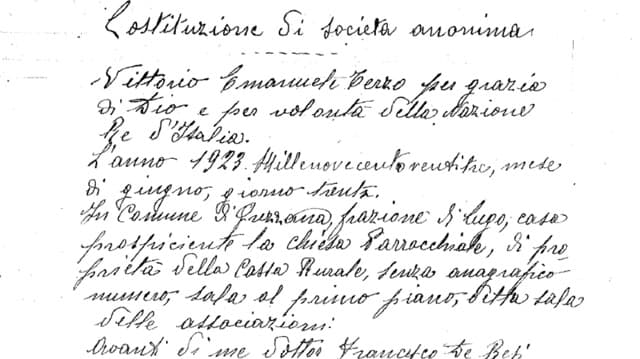 Costituzione di società anonima
Vittorio Emanuele Terzo per grazia
di Dio e per volontà della Nazione
Re d'Italia.
L'anno 1923. Millenovecentoventitre, mese
di giugno, giorno trenta.
In Comune di Grezzana, frazione di Lugo, casa
prospiciente la chiesa Parrocchiale, di pro
prietà della Cassa Rurale, senza anagrafico
numero, sala al primo piano, detta sala
delle associazioni:
Avanti di me dottor Francesco De Besi